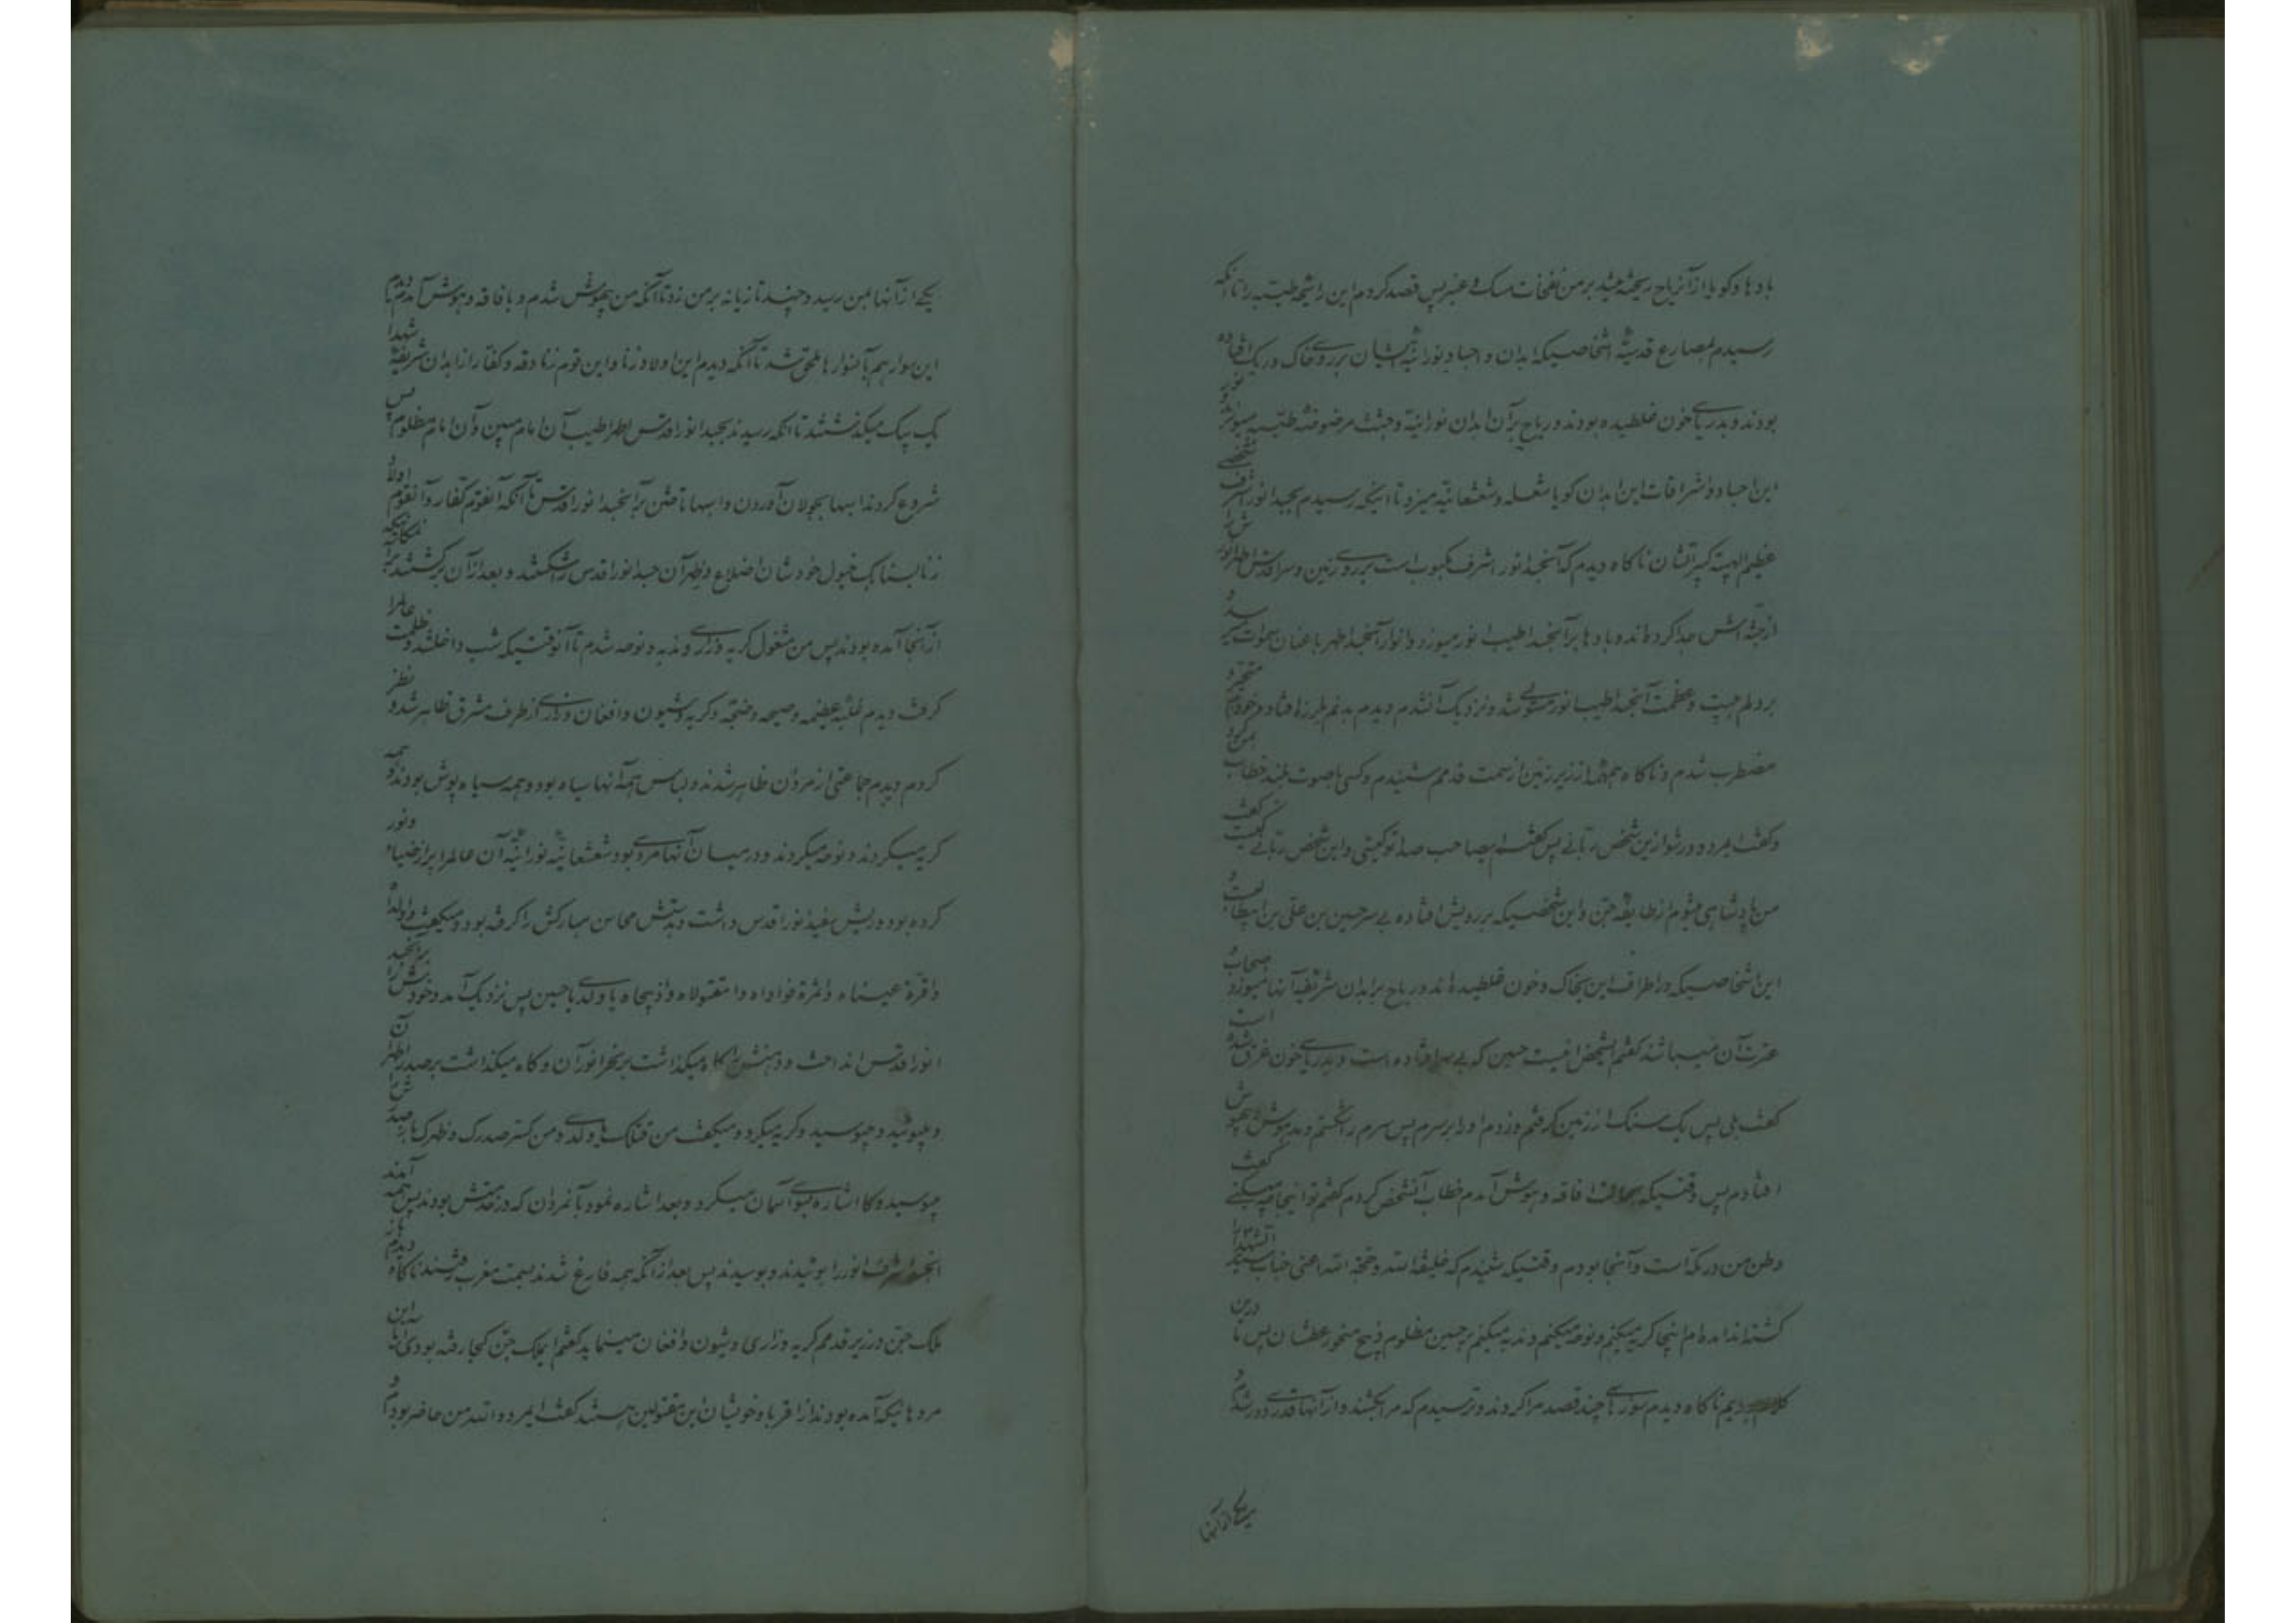 بادها و کویا از آنریاح ریخته میشد بر من نفخات مسک و عنبر پس قصد کردم این رایحه طیبه را تا آنکه
رسیدم بمصارع قدسیه اشخاصیکه ابدان و اجساد نورانیه ایشان بر روی خاک و ریک افتاده
بودند و بدریای خون غلطیده بودند و ریاح بر آن ابدان نورانیه و جثث مرضوضه طیبه میوزند و نور
این اجساد و اشراقات این ابدان کویا شعله و شعشعانیه میزد تا اینکه رسیدم بجسد انور اشرف شخصی
عظیم الهیبة کبیر الشان ناکاه دیدم که آنجسد انور اشرف مکبوب است بر روی زمین و سر اقدس اطهر انورش را
از جثه اش جدا کرده اند و بادها بر آنجسد اطیب انور میوزد و انوار آنجسد اطهر با عنان سموات میرسد و
بر دلم هیبت و عظمت آنجسد اطیب انور مستولی شد و نزدیک آن شدم دیدم بدنم بلرزه افتاد و خودم متحیر و
مضطرب شدم و ناکاه از زیر زمین از سمت قدمم شنیدم و کسی با صوت بلند خطاب بمن کرد
و کفت ایمرد دور شو از این شخص ربانی پس کفتم ایصاحب صدا تو کیستی و این شخص ربانی کیست کفت
من پادشاهی میشوم از طایفه جن و این شخصیکه بر رویش افتاده بی سر حسین بن علی بن ابیطالب است و
این اشخاصیکه در اطراف این بخاک و خون غلطیده اند و ریاح بر ابدان شریفه آنها میوزد اصحاب و
عترت آن میباشند کفتم این شخص انیست حسین که بی سر افتاده است و بدریای خون غرق شده است
کفت بلی پس یک سنک از زمین کرفتم و زدم او را بر سرم پس سرم را شکستم و مدهوش و بیهوش
افتادم پس وقتیکه بحالت افاقه و بهوش آمدم خطاب آنشخص کردم کفتم تو اینجا چه میکنی کفت
وطن من در مکه است و آنجا بودم وقتیکه شنیدم که خلیفة الله و حجة الله اعنی جناب سید الشهدا را
کشته اند آمده ام اینجا کریه میکنم و نوحه میکنم و ندبه میکنم بر حسین مظلوم ذبیح منحور عطشان پس ما درین
کلام بودیم ناکاه دیدم سواری چند قصد مرا کردند و ترسیدم که مرا بکشند و از آنها قدری دور شدم و
یکی از آنها
یکی از آنها بمن رسید و چند تازیانه بر من زد تا آنکه من بیهوش شدم و با فاقه و بهوش آمدم دیدم
این سوار هم با کسوارها ملحق شد تا آنکه دیدم این اولاد زنا و این قوم زنادقه و کفار از ابدان شریفه شهدا
یک بیک میکذشتند تا آنکه رسیدند بجسد انور اقدس اطهر اطیب آن امام مبین و آن امام مظلوم پس
شروع کردند اسبها بجولان آوردن و اسبها تاختن بر آنجسد انور اقدس تا آنکه آنقوم کفار و آنقوم اولاد
زنا بسنابک خیول خودشان اضلاع و ظهر آن جسد انور اقدس را شکستند و بعد از آن برکشتند بمکانیکه
از آنجا آمده بودند پس من مشغول کریه و زاری و ندبه و نوحه شدم تا آنوقتیکه شب داخل شد و ظلمت عالم را
کرفت دیدم غلبه عظیمه و صیحه و ضجه و کریه و شیون و افغان و زاری از طرف مشرق ظاهر شد و نظر
کردم دیدم جماعتی از مردان ظاهر شدند و لباس همه آنها سیاه بود و همه سیاه پوش بودند و همه
کریه میکردند و نوحه میکردند و در میان آنها مردی بود شعشعانیه نورانیه آن عالم را پر از ضیاء و نور
کرده بود و ریش سفید انور اقدس داشت و بدستش محاسن مبارکش را کرفته بود و میکفت وا ولداه
وا قرة عیناه وا ثمرة فواداه وا مقتولاه وا ذبیحاه یا ولدی یا حسین پس نزدیک آمد و خودش را بر آنجسد
انور اقدس انداخت و دهنش را کاه میکذاشت بر نحر انور آن و کاه میکذاشت بر صدر اطهر آن
و میبوئید و میبوسید و کریه میکرد و میکفت من قتلک یا ولدی و من کسر صدرک و ظهرک باز صدرش را
میبوسید و کاه اشاره بسوی آسمان میکرد و بعد اشاره نمود بآنمردان که در خدمتش بودند پس همه آمدند
آنجسد اشرف انور را بوئیدند و بوسیدند پس بعد از آنکه همه فارغ شدند بسمت مغرب رفتند ناکاه باز دیدم
ملک جن در زیر قدمم کریه و زاری و شیون و افغان مینماید کفتم ایملک جن کجا رفته بودی آیا این
مردهائیکه آمده بودند از اقربا و خویشان این مقتولین هستند کفت ایمرد والله من حاضر بودم و